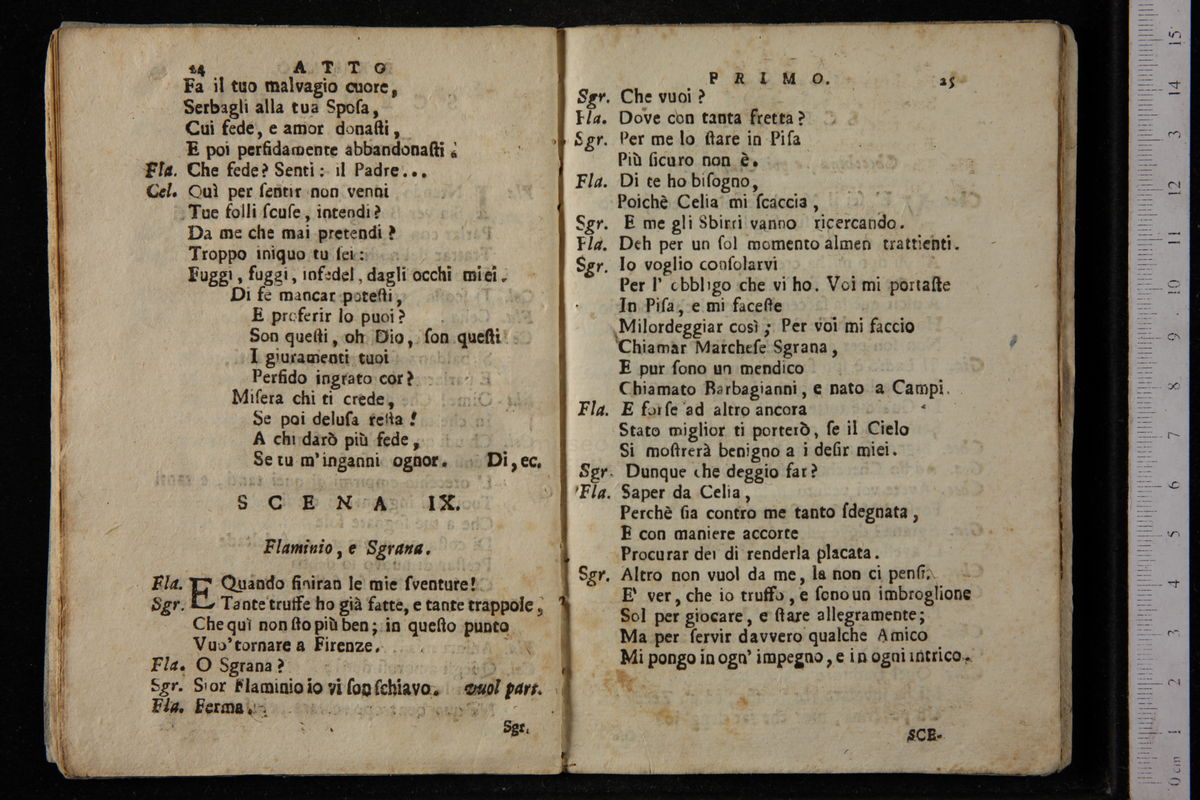 24 ATTO
Fa il tuo malvagio cuore,
Serbagli alla tua Spoſa,
Cui fede, e amor donaſti,
E poi perfidamente abbandonaſti.
Fla. Che fede? Senti: il Padre...
Cel. Quì per ſentir non venni
Tue folli ſcuſe, intendi?
Da me che mai pretendi?
Troppo iniquo tu ſei:
Fuggi, fuggi, infedel, dagli occhi miei.
Di fe mancar poteſti,
E proferir lo puoi?
Son queſti, oh Dio, ſon queſti
I giuramenti tuoi
Perfido ingrato cor?
Miſera chi ti crede,
Se poi deluſa reſta!
A chi darò più fede,
Se tu m'inganni ognor. Di, ec.
SCENA IX.
Flaminio, e Sgrana.
Fla. E Quando finiran le mie ſventure!
Sgr. Tante truffe ho già fatte, e tante trappole,
Che quì non ſto più ben; in queſto punto
Vuo' tornare a Firenze.
Fla. O Sgrana?
Sgr. Sior Flaminio io vi ſon ſchiavo. vuol part.
Fla. Ferma.
Sgr.
PRIMO. 25
Sgr. Che vuoi?
Fla. Dove con tanta fretta?
Sgr. Per me lo ſtare in Piſa
Più ſicuro non è.
Fla. Di te ho biſogno,
Poichè Celia mi ſcaccia,
Sgr. E me gli Sbirri vanno ricercando.
Fla. Deh per un ſol momento almen trattienti.
Sgr. Io voglio conſolarvi
Per l' obbligo che vi ho. Voi mi portaſte
In Piſa, e mi faceſte
Milordeggiar così; Per voi mi faccio
Chiamar Marcheſe Sgrana,
E pur ſono un mendico
Chiamato Barbagianni, e nato a Campi.
Fla. E forſe ad altro ancora
Stato miglior ti porterò, ſe il Cielo
Si moſtrerà benigno a i deſir miei.
Sgr. Dunque che deggio far?
Fla. Saper da Celia,
Perchè ſia contro me tanto ſdegnata,
E con maniere accorte
Procurar dei di renderla placata.
Sgr. Altro non vuol da me, la non ci penſi.
E' ver, che io truffo, e ſono un imbroglione
Sol per giocare, e ſtare allegramente;
Ma per ſervir davvero qualche Amico
Mi pongo in ogn' impegno, e in ogni intrico.
SCE-
0 cm 1 2 3 4 5 6 7 8 9 10 11 12 13 14 15